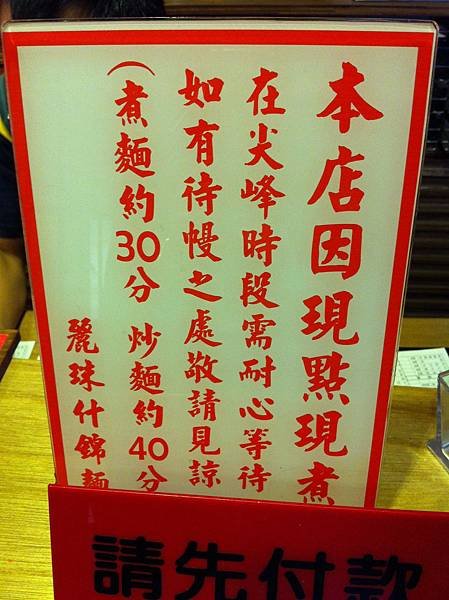 本店因現點現煮
在尖峰時段需耐心等待
如有待幔之處敬請見諒
(煮麵約30分 炒麵約40分
麗珠什錦麵
請先付款